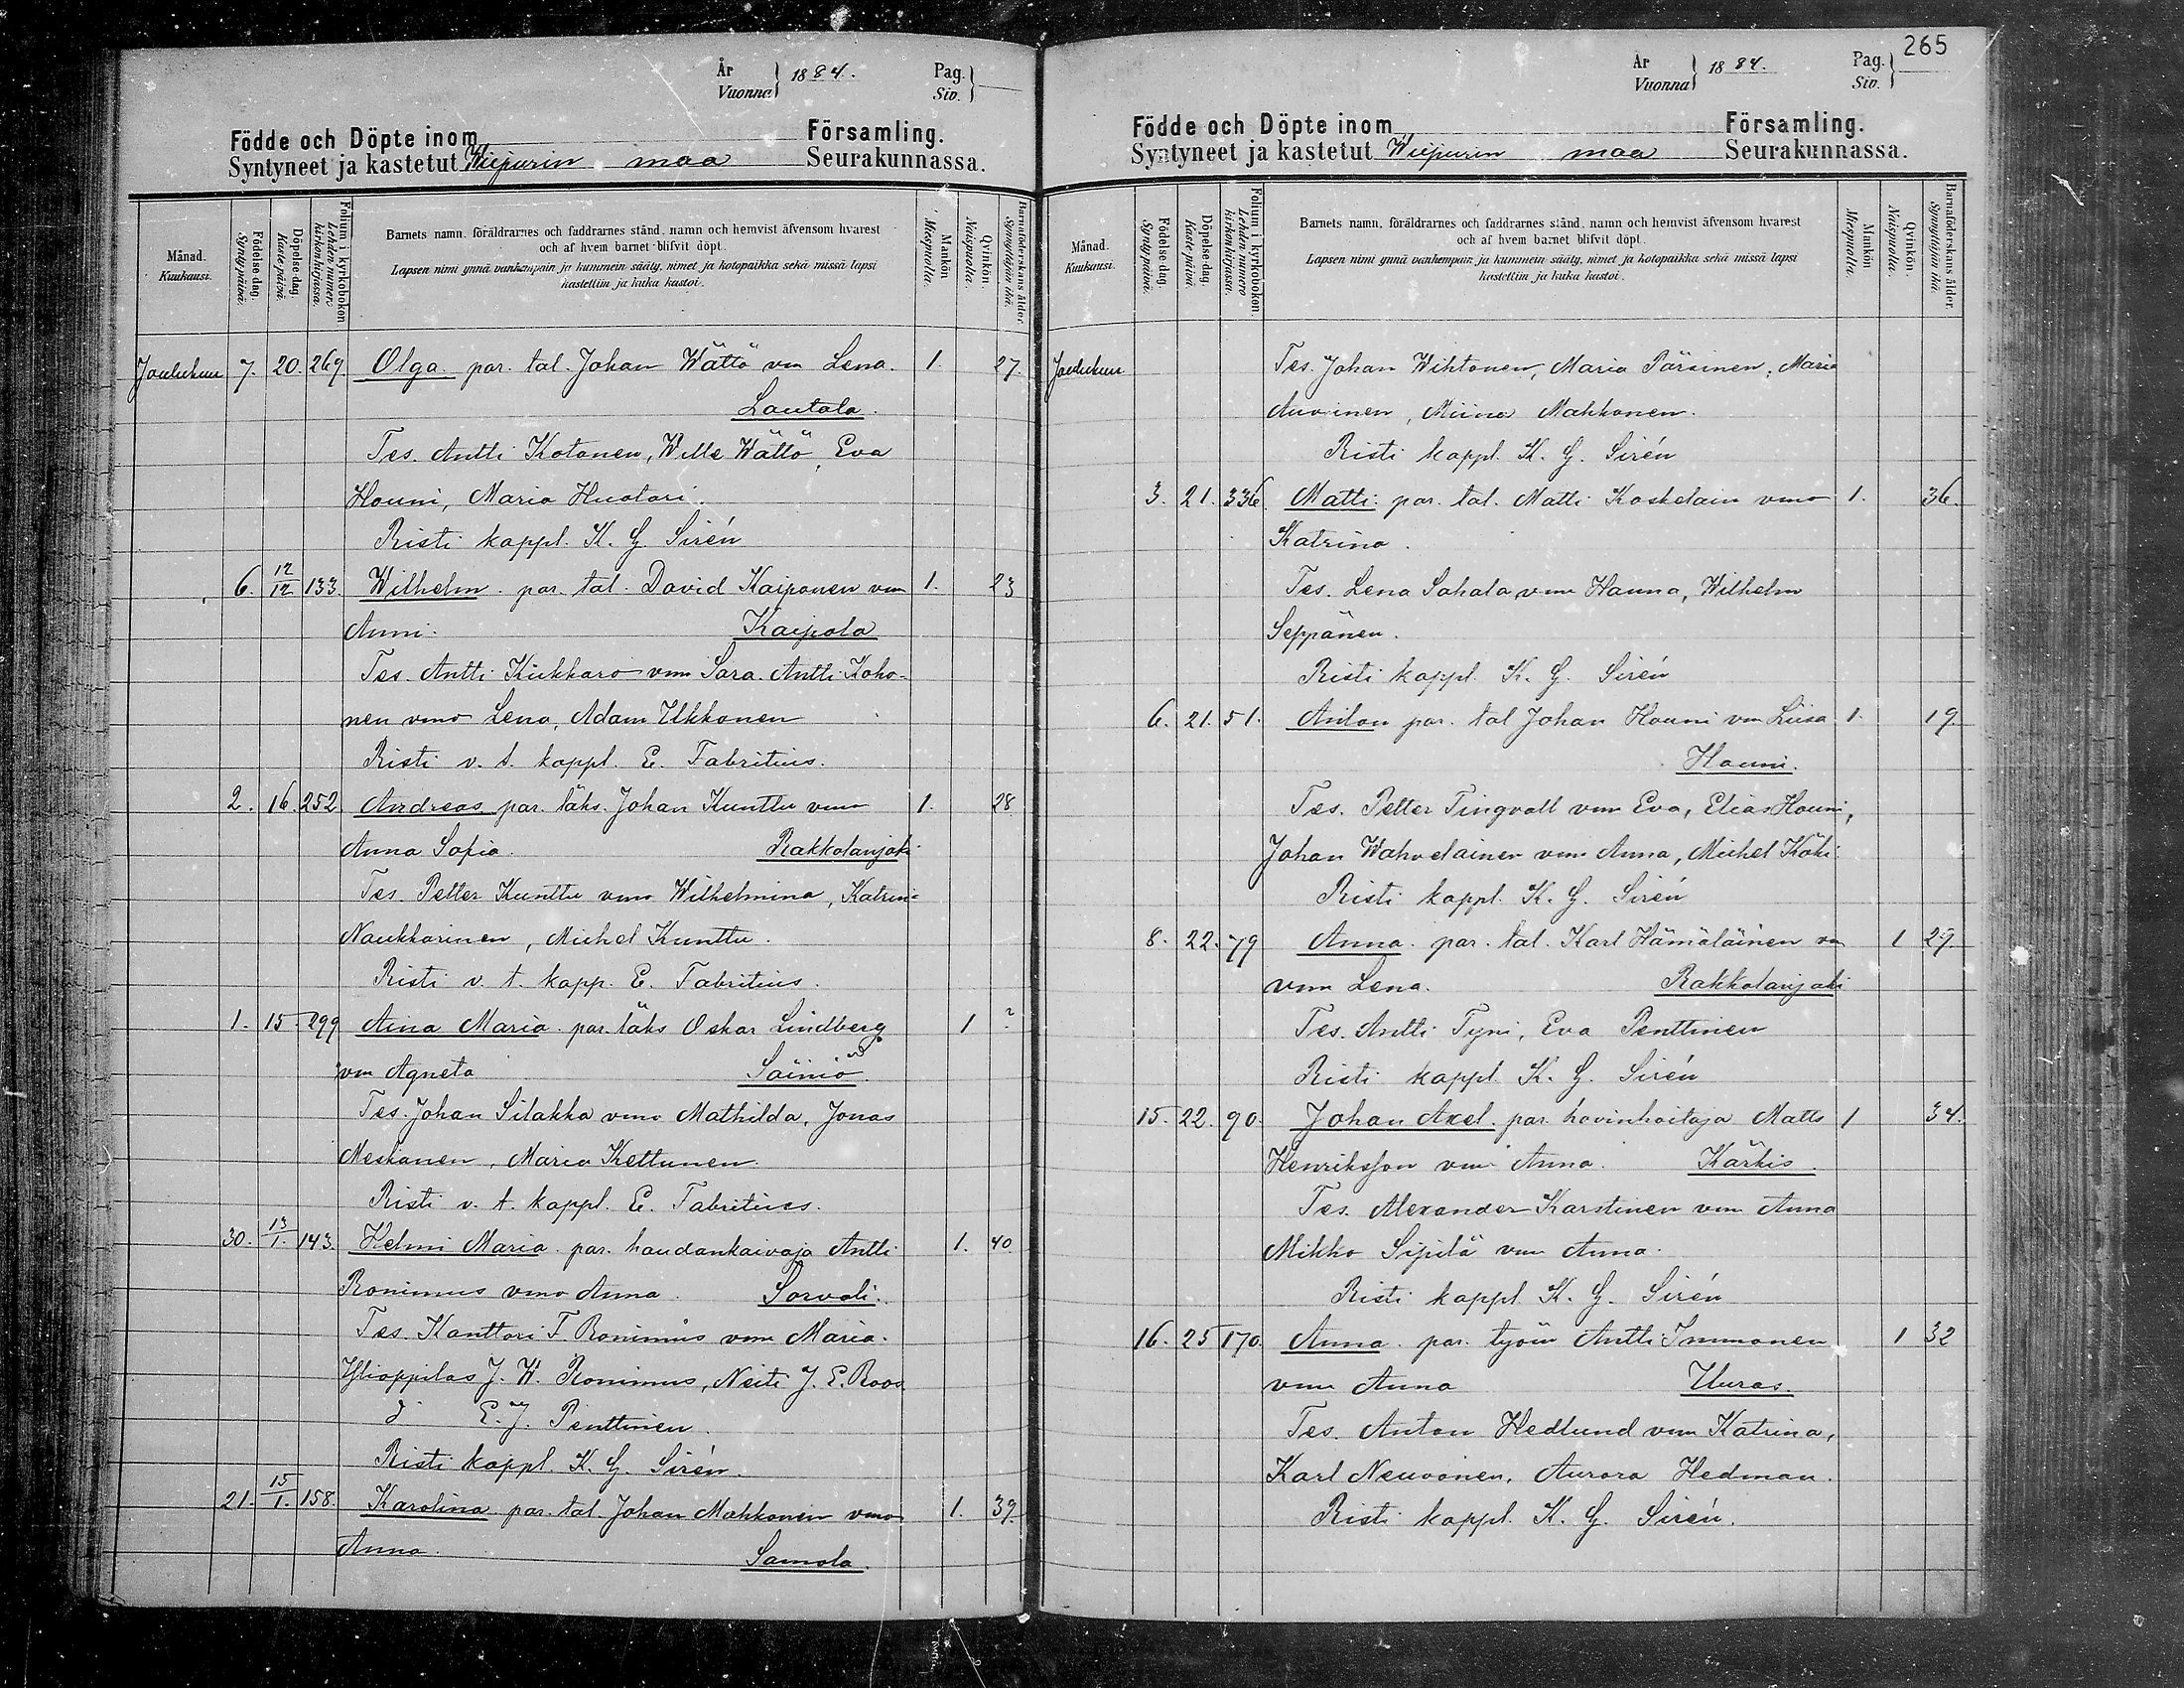 År
Vuonna } 1884.
Pag.
Siv. }
Födde och Döpte inom Församling.
Syntyneet ja kastetut Wiipurin maa Seurakunnassa.
Månad.
Kuukausi.
Födelse-dag.
Syntypäivä.
Döpelse-dag.
Kastepäivä.
Folium i kyrkobokon
Lehden numero kirkonkirjassa.
Barnets namn, föräldrarnes och faddrarnes stånd, namn och hemvist äfvensom hvarest
och af hvem barnet blifvit döpt.
Lapsen nimi ynnä vanhempain ja kummein sääty, nimet ja kotopaikka sekä missä lapsi
kastettiin ja kuka kastoi.
Mankön
Miespuolia.
Qvinkön.
Naispuolia.
Barnaföderskans ålder
Synnyttäjän ikä.
Joulukuu 7. 20. 269 Olga par. tal. Johan Wättö vm Lena. 1. 27
Lautala.
Tes. Antti Kotonen, Wille Wättö, Eva
Houni, Maria Huotari.
Risti kappl. K. G. Sirén
6. 12/12 133. Wilhelm. par. tal. David Kaiponen vm 1. 23
Anni. Kaipola
Tes. Antti Kukkaro vmo Sara. Antti Koho-
nen vmo Lena, Adam Ukkonen
Risti v. t. kappl. E. Fabritius.
2. 16. 252 Andreas par. läks. Johan Kunttu vmo 1. 28
Anna Sofia. Rakkolanjoki
Tes. Petter Kunttu vmo Wilhelmina, Katrin
Naukkarinen, Michel Kunttu.
Risti v. t. kapp. E. Fabritius.
1. 15. 299 Aina Maria par. läks Oskar Lindberg 1 ?
vm Agneta Säiniö
Tes. Johan Silakka vmo Mathilda, Jonas
Meskanen, Maria Kettunen.
Risti v. t. kappl. E. Fabritius.
30. 13/1. 143. Helmi Maria par. haudankaivaja Antti 1. 40
Ronimus vmo Anna. Sorvali.
Tes. Kanttori F. Ronimus vmo Maria.
Ylioppilas J. W. Ronimus, Neiti J. E. Roos
d:o E. J. Penttinen.
Risti kappl. K. G. Sirén.
21. 15/1. 158. Karolina par. tal. Johan Mahkonen vmo 1. 39.
Anna. Samola.
265
År
Vuonna } 1884.
Pag.
Siv. }
Födde och Döpte inom Församling.
Syntyneet ja kastetut Wiipurin maa Seurakunnassa.
Månad.
Kuukausi.
Födelse-dag.
Syntypäivä.
Döpelse-dag.
Kastepäivä.
Folium i kyrkobokon.
Lehden numero kirkonkirjassa.
Barnets namn, föräldrarnes och faddrarnes stånd, namn och hemvist äfvensom hvarest
och af hvem barnet blifvit döpt.
Lapsen nimi ynnä vanhempain ja kummein sääty, nimet ja kotopaikka sekä missä lapsi
kastettiin ja kuka kastoi.
Mankön
Miespuolia.
Qvinkön.
Naispuolia.
Barnaföderskans ålder.
Synnyttäjän ikä.
Joulukuu Tes. Johan Wihtonen, Maria Pärsinen, Maria
Auvinen, Miina Mahkonen.
Risti kappl. K. G. Sirén
3. 21. 336. Matti. par. tal. Matti Koskelain vmo 1. 36.
Katrina.
Tes. Lena Sahala vmo Hanna, Wilhelm
Seppänen.
Risti kappl. K. G. Sirén
6. 21. 51. Anton par. tal Johan Houni vm Liisa 1. 19.
Houni.
Tes. Petter Tingvall vm Eva, Elias Houni,
Johan Wahvelainen vm Anna, Michel Köki
Risti kappl. K. G. Sirén
8. 22. 79 Anna par. tal. Karl Hämäläinen vm 1 29
vm Lena. Rakkolanjoki
Tes. Antti Tyni, Eva Penttinen
Risti kappl. K. G. Sirén
15. 22. 90. Johan Axel. par. hovinhoitaja Matts 1 34.
Henriksson vm Anna. Kärkis.
Tes. Alexander Karstinen vm Anna
Mikko Sipilä vm Anna.
Risti kappl. K. G. Sirén
16. 25 170. Anna par. työm Antti Immonen 1 32
vm Anna Uuras.
Tes. Anton Hedlund vm Katrina,
Karl Neuvonen, Aurora Hedman.
Risti kappl. K. G. Sirén.